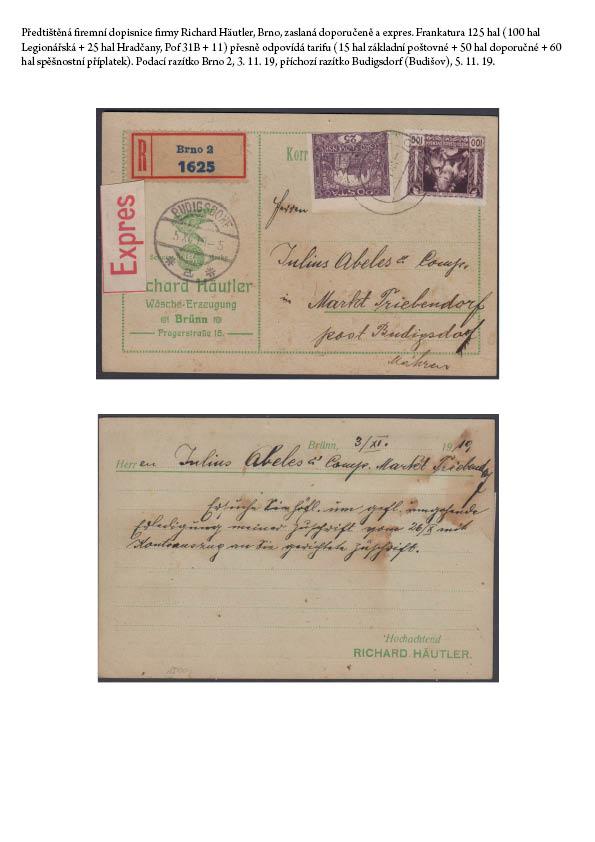 Předtištěná firemní dopisnice firmy Richard Häutler, Brno, zaslaná doporučeně a expres. Frankatura 125 hal (100 hal
Legionářská + 25 hal Hradčany, Pof 31B + 11) přesně odpovídá tarifu (15 hal základní poštovné + 50 hal doporučné + 60
hal spěšnostní příplatek). Podací razítko Brno 2, 3. 11. 19, příchozí razítko Budigsdorf (Budišov), 5. 11. 19.
R
Brno 2
1625
Korr
25
100 100
Expres
BUDIGSDORF
Herren
Julius Abeles & Comp.
in Markt Triebendorf
post Budigsdorf
Mähren
chard Häutler
Wäsche-Erzeugung
Brünn
Pragerstraße 18.
Brünn, 3/XI. 1919
Herren Julius Abeles & Comp. Markt Triebendorf
Ersuche Sie höfl. um gefl. umgehende
Erledigung meiner Zuschrift vom 26/X mit
Kontoauszug an Sie gerichtete Zuschrift.
Hochachtend
RICHARD HÄUTLER.